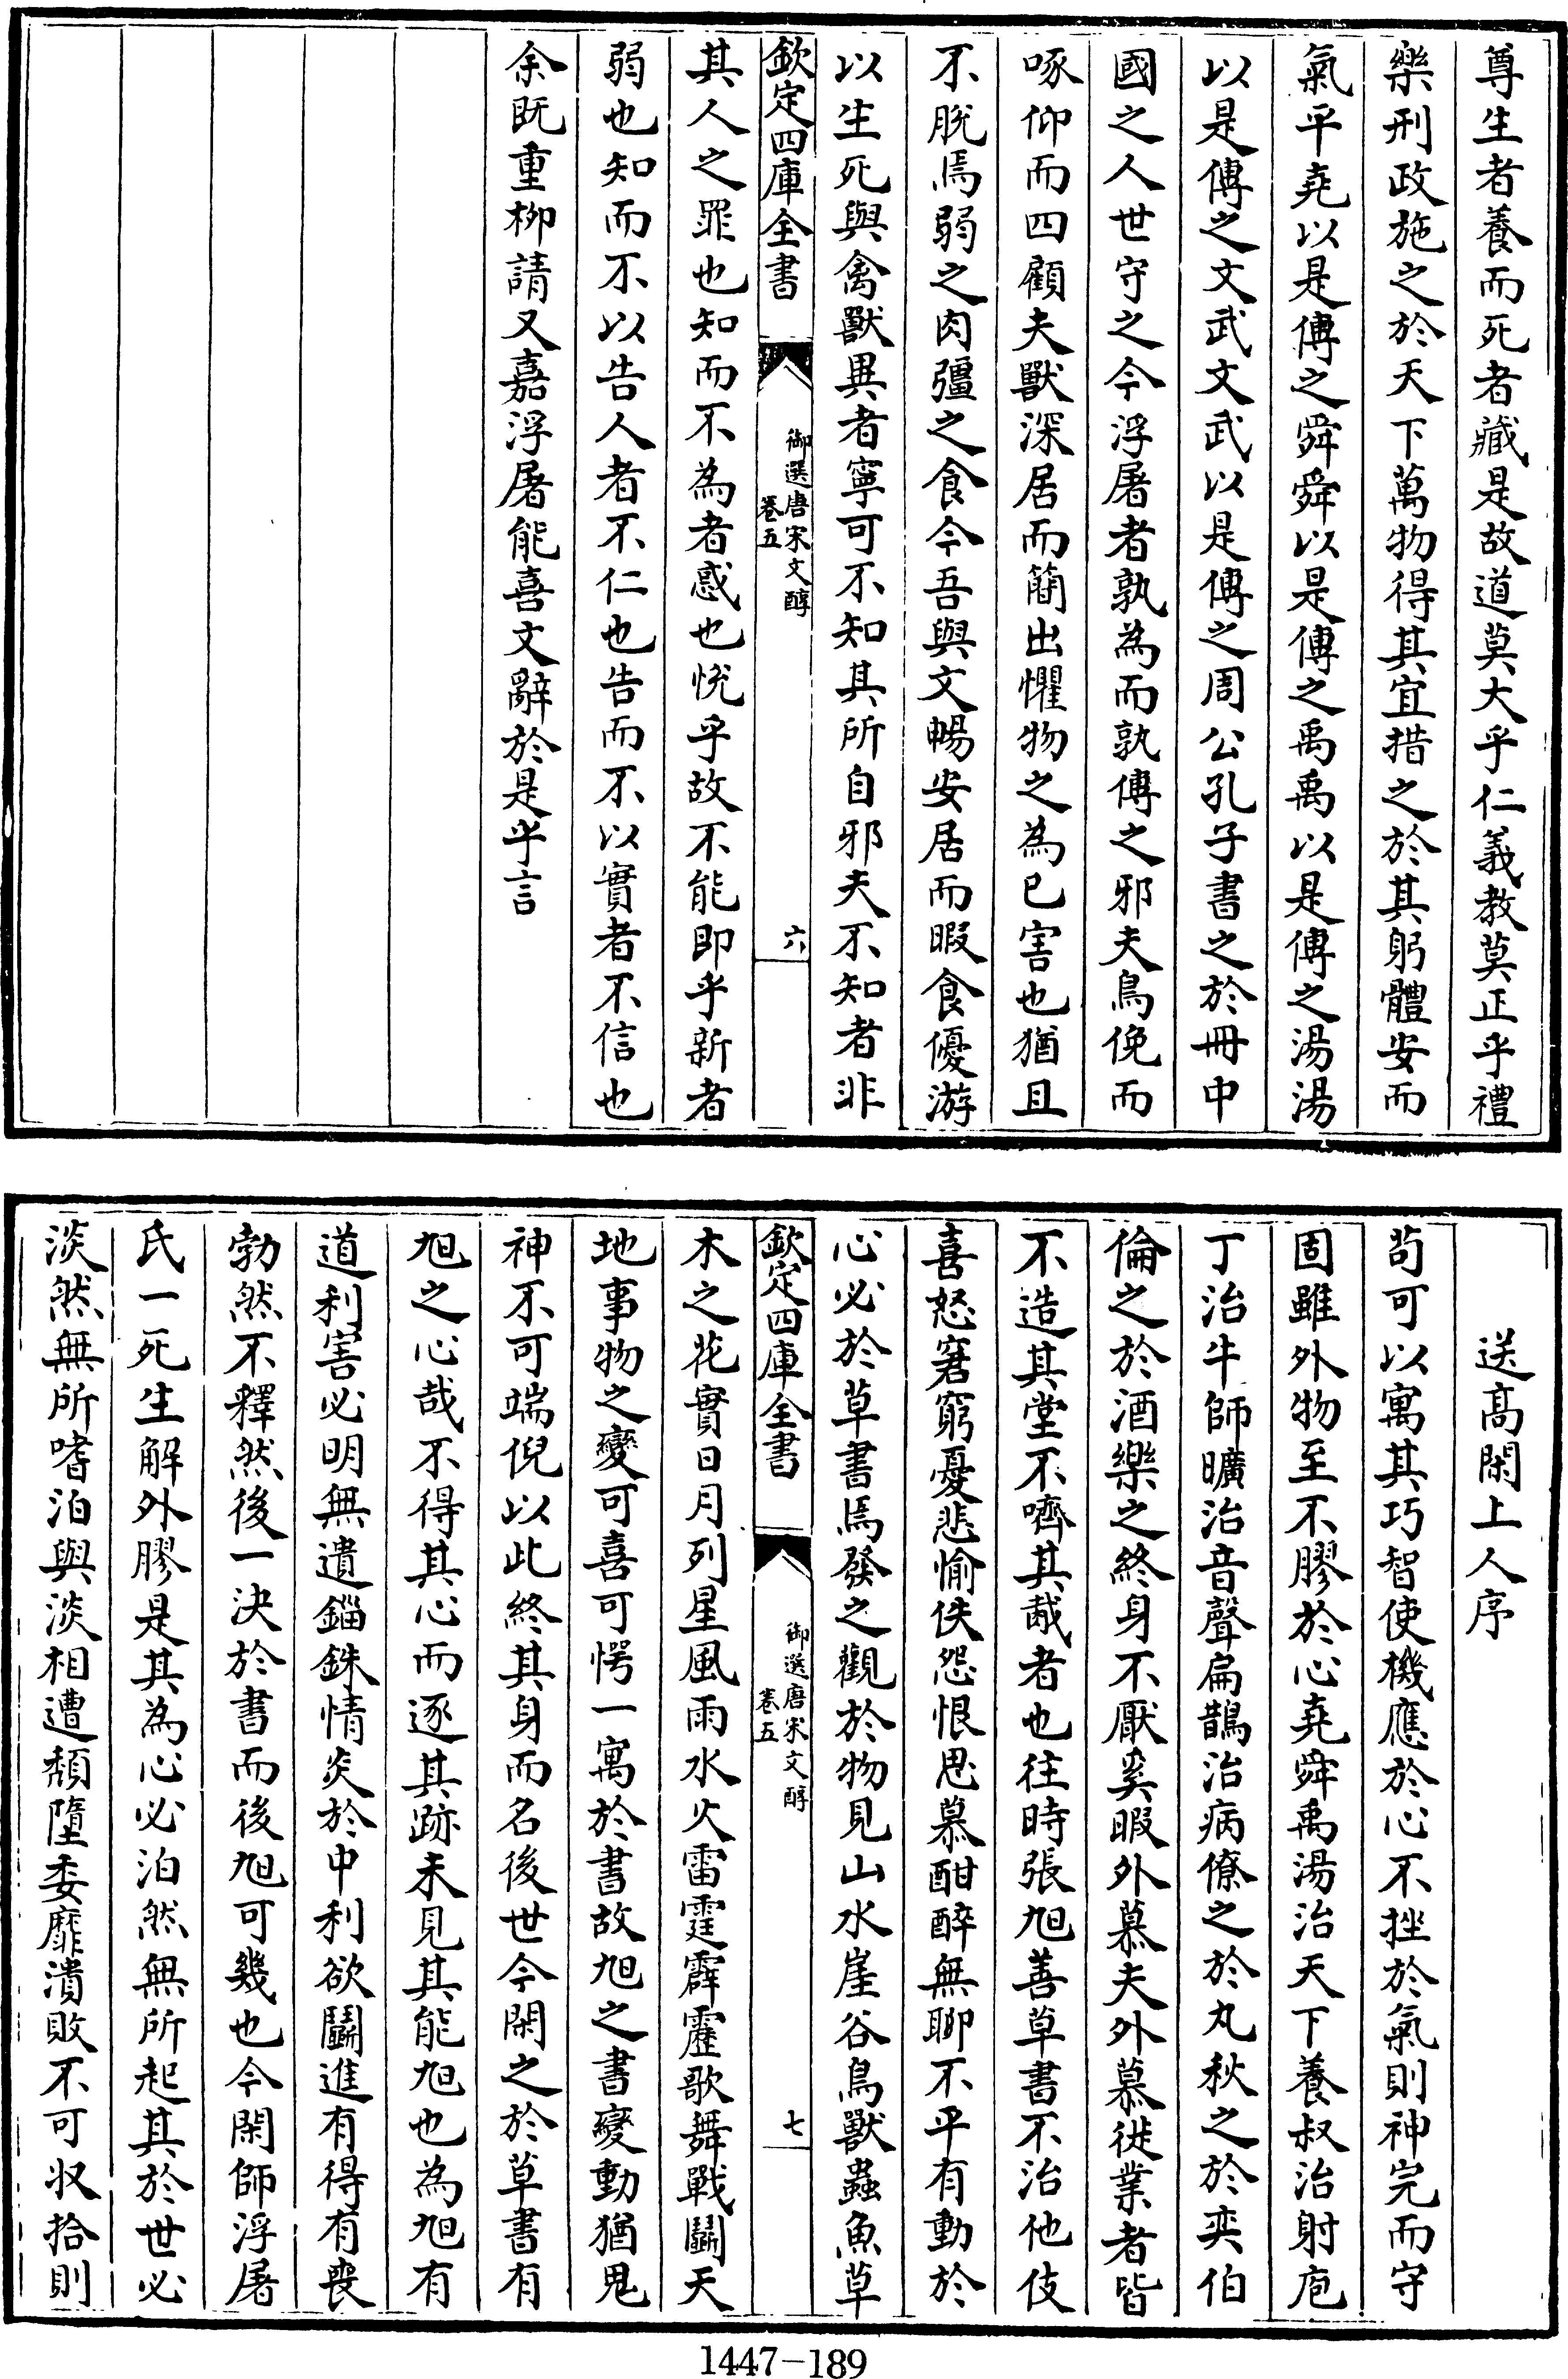 尊生者養而死者藏是故道莫大乎仁義教莫正乎禮
樂刑政施之於天下萬物得其宜措之於其躬體安而
氣平堯以是傳之舜舜以是傳之禹禹以是傳之湯湯
以是傳之文武文武以是傳之周公孔子書之於冊中
國之人世守之今浮屠者孰為而孰傳之邪夫鳥俛而
啄仰而四顧夫獸深居而簡出懼物之為已害也猶且
不脫焉弱之肉彊之食今吾與文暢安居而暇食優游
以生死與禽獸異者寧可不知其所自邪夫不知者非
欽定四庫全書
御選唐宋文醇
卷五
六
其人之罪也知而不為者惑也悅乎故不能即乎新者
弱也知而不以告人者不仁也告而不以實者不信也
余既重柳請又嘉浮屠能喜文辭於是乎言
送高閑上人序
苟可以寓其巧智使機應於心不挫於氣則神完而守
固雖外物至不膠於心堯舜禹湯治天下養叔治射庖
丁治牛師曠治音聲扁鵲治病僚之於丸秋之於奕伯
倫之於酒樂之終身不厭奚暇外慕夫外慕徙業者皆
不造其堂不嚌其胾者也往時張旭善草書不治他伎
喜怒窘窮憂悲愉佚怨恨思慕酣醉無聊不平有動於
心必於草書焉發之觀於物見山水崖谷鳥獸蟲魚草
欽定四庫全書
御選唐宋文醇
卷五
七
木之花實日月列星風雨水火雷霆霹靂歌舞戰鬬天
地事物之變可喜可愕一寓於書故旭之書變動猶鬼
神不可端倪以此終其身而名後世今閑之於草書有
旭之心哉不得其心而逐其跡未見其能旭也為旭有
道利害必明無遺錙銖情炎於中利欲鬬進有得有喪
勃然不釋然後一決於書而後旭可幾也今閑師浮屠
氏一死生解外膠是其為心必泊然無所起其於世必
淡然無所嗜泊與淡相遭頹墮委靡潰敗不可収拾則
1447-189